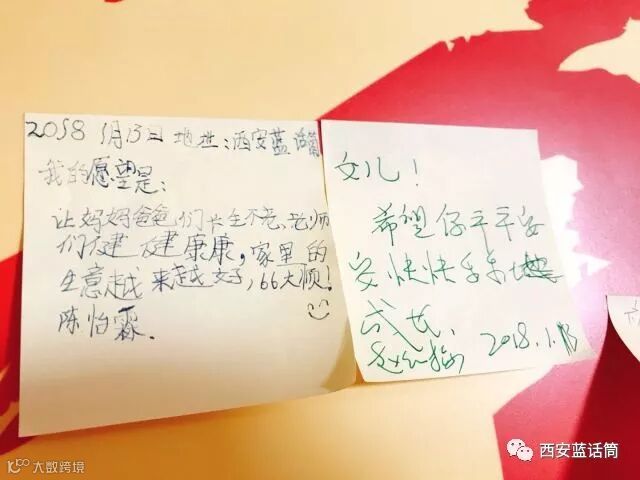 2018 1月13日 地址:西安蓝话筒
我的愿望是:
让妈妈爸爸们长生不老,老师
们健健康康,家里的
生意越来越好,66大顺!
陈怡霖.
女儿!
希望你平平安
安快快乐乐地
成长.
2018.1.13
西安蓝话筒
大数跨境